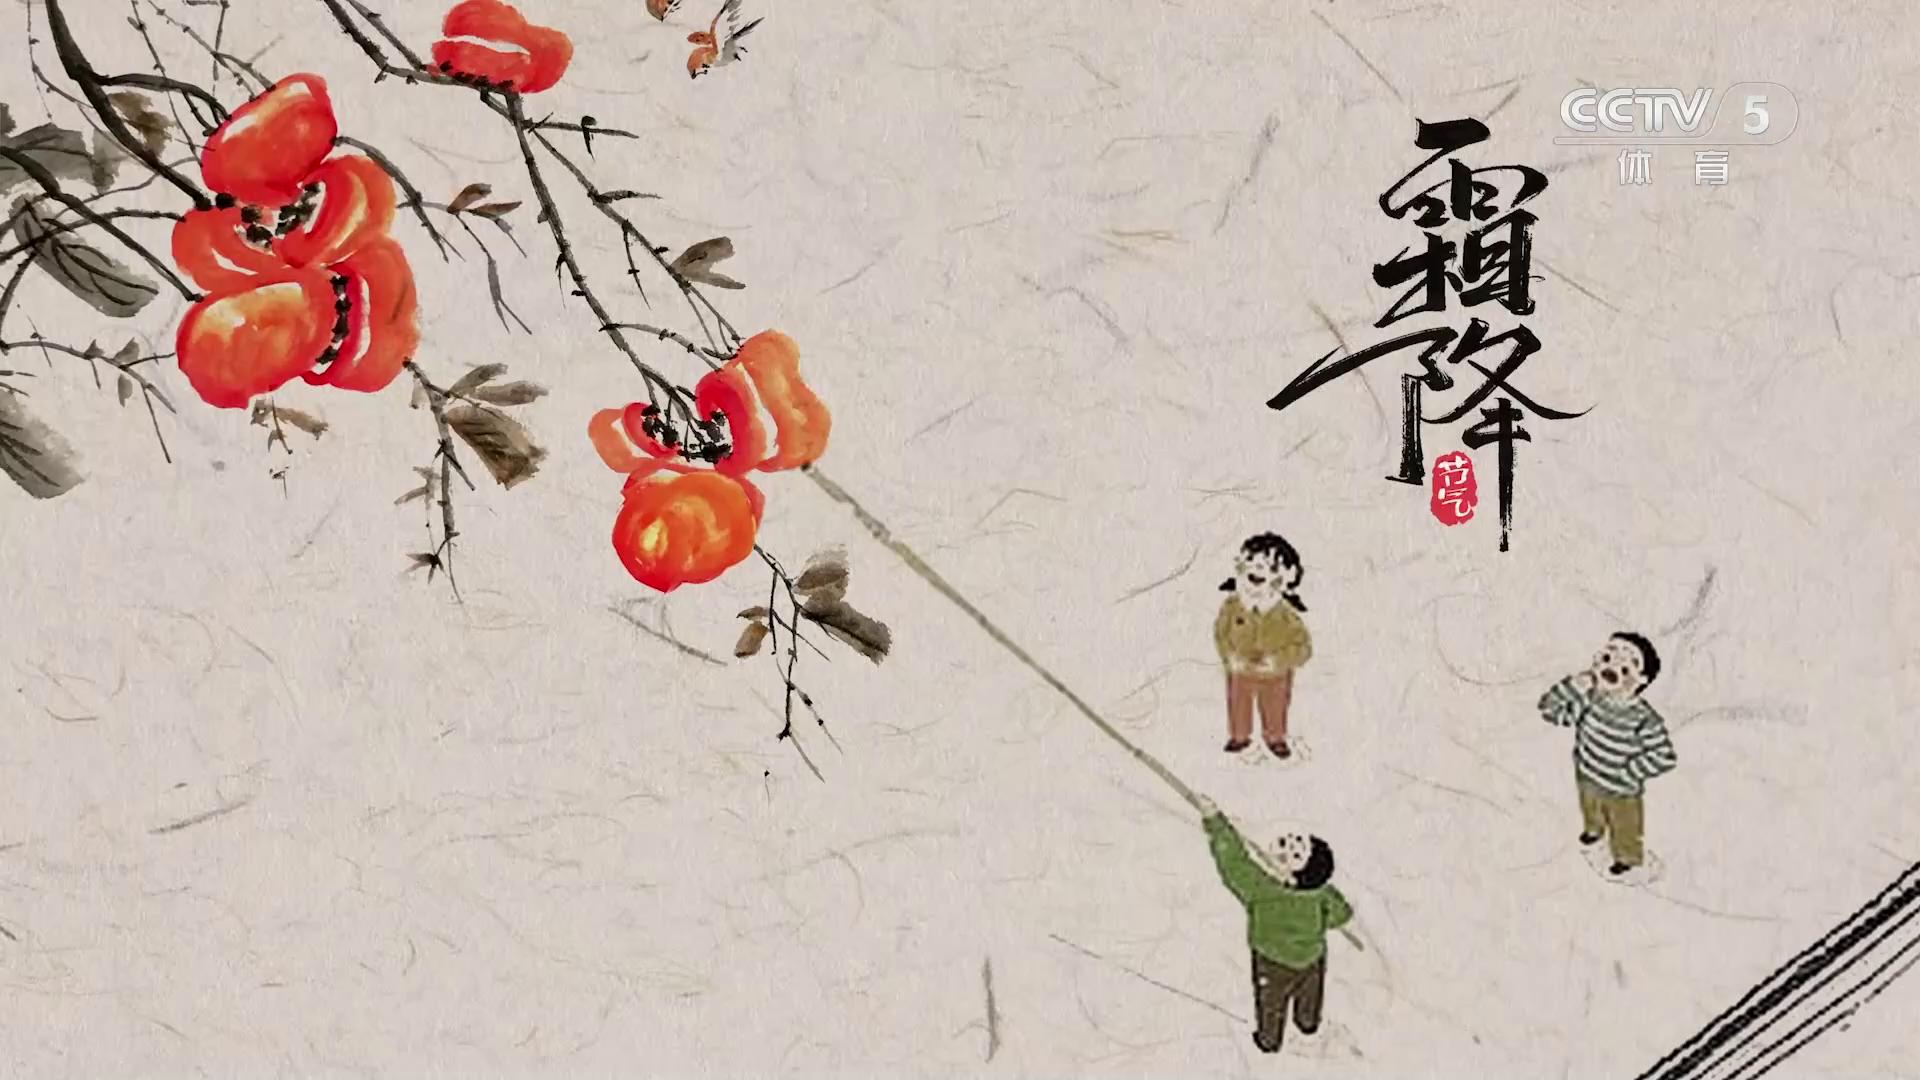 CCTV 5
体育
霜降
节气